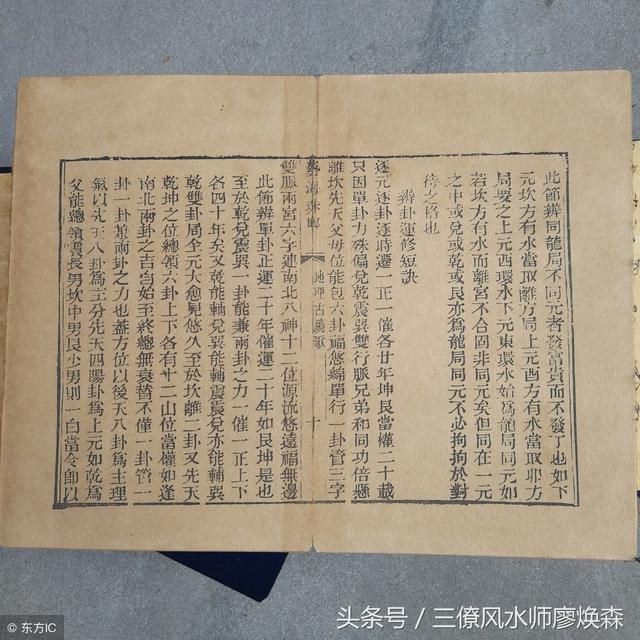 此節辨同龍局不同元者發富貴而不發丁也如下
元坎方有水當取離方局上元酉方有水當取卯方
局要之上元西環水下元東環水始為龍局同元如
若坎方有水而離宮不合固非同元矣但同在一元
之中或兌或乾或艮亦為龍局同元不必拘拘於對
待之格也
辨卦運修短訣
逐元逐卦逐時遷一正一催各廿年坤艮當權二十載
只因單卦力殊偏兌乾震巽雙行脈兄弟和同功倍懸
離坎先天父母位能包六卦福悠綿單行一卦管三字
藝海珠塵
地理古鏡歌
十
雙脈兩宮六字連南北八神十二位源流悠遠福無邊
此節辨單卦正運二十年催運二十年如艮坤是也
至於乾兌震巽一卦能兼兩卦之力一催一正上下
各四十年矣又乾能輔兌巽能輔震震兌亦能輔巽
乾雙卦局全元大愈見悠久至於坎離二卦又先天
乾坤之位總領六卦上下各有十二山位當催如逢
南北兩卦之吉自始至終總無衰替不僅一卦管一
卦一卦兼兩卦之力也蓋方位以後天八卦為主理
氣以先天八卦為主分先天四陽卦為上元如乾為
父能總領震長男坎中男艮少男則一白當令即以
© 东方IC
头条号 / 三僚风水师廖焕森